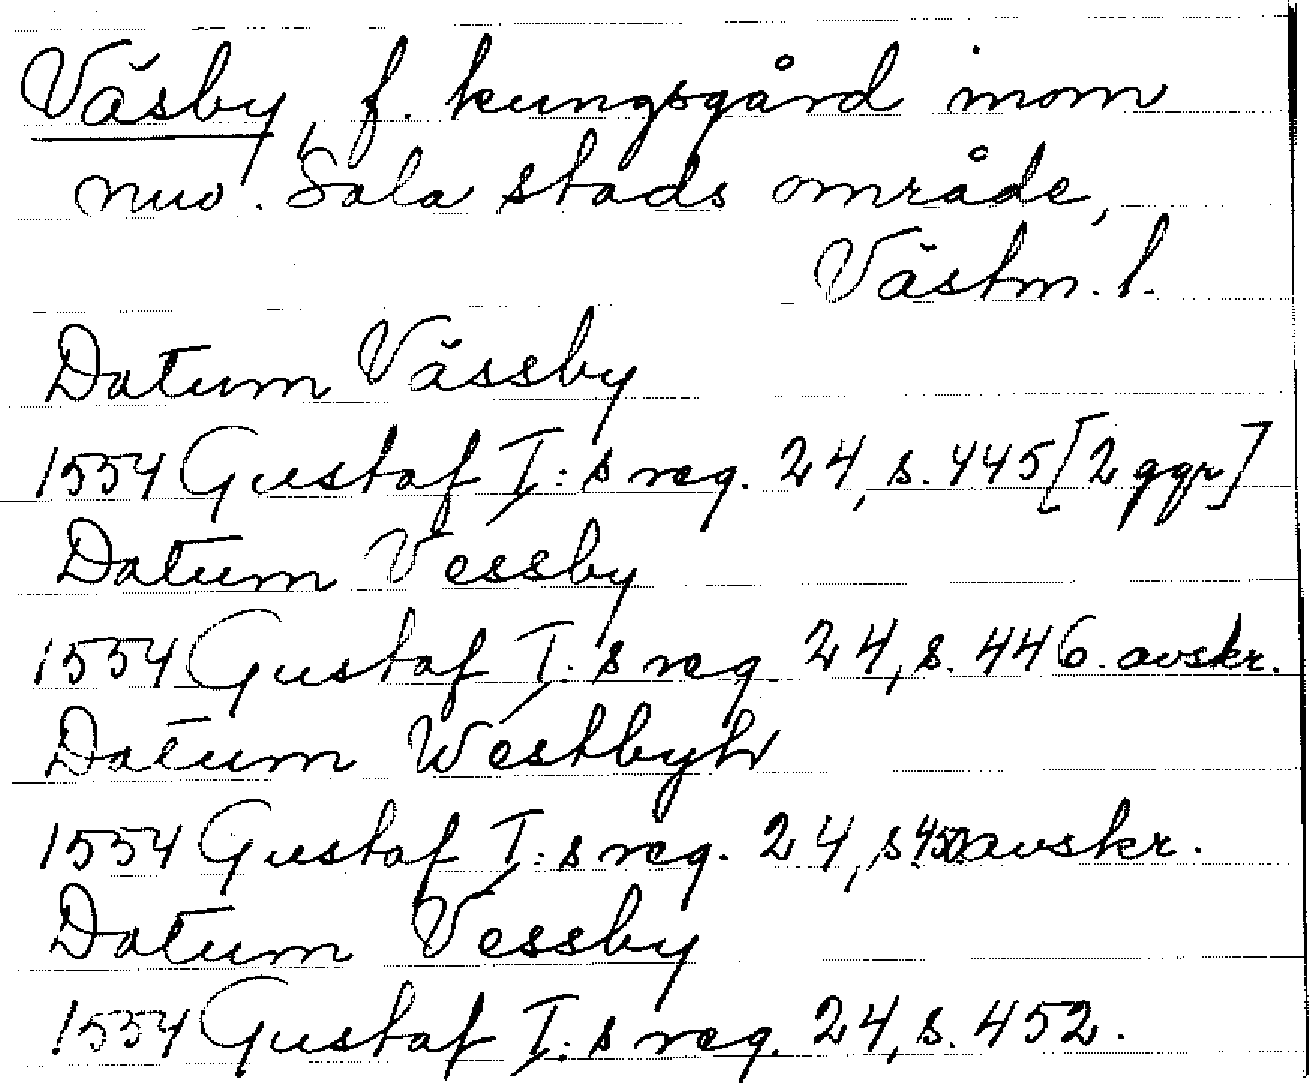 Väsby, f. kungsgård inom
nuv. Sala stads område,
Västm. l.
Datum Vässby
1554 Gustaf I:s reg. 24, s. 445 [2 ggr]
Datum Vessby
1554 Gustaf I:s reg. 24, s. 446. avskr.
Datum Westbyh
1554 Gustaf I:s reg. 24, s 450 avskr.
Datum Vessby
1554 Gustaf I:s reg. 24, s. 452.